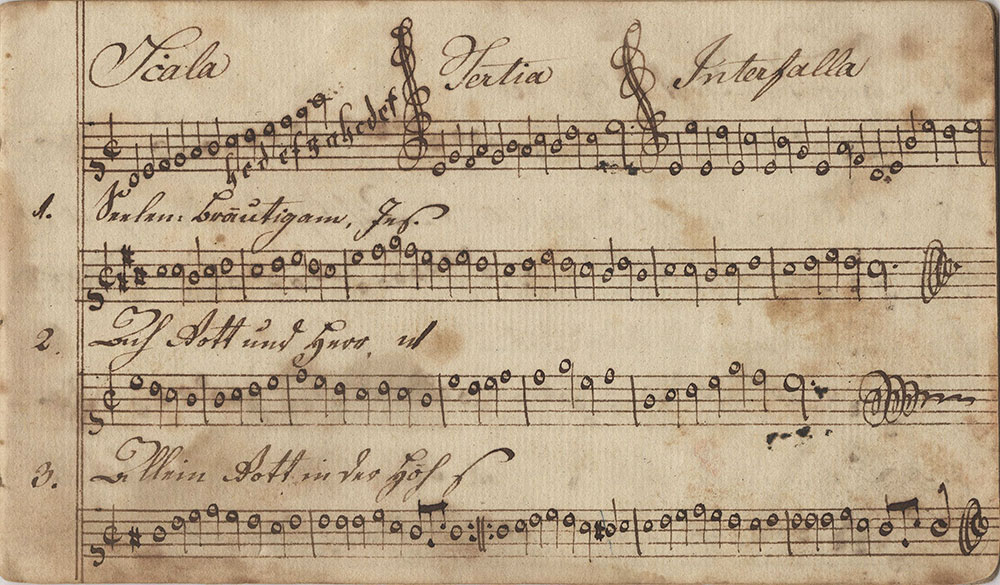 Scala Tertia Interfalla
h c d e f g a h c d e f
1. Seelen: Bräutigam, Jes.
2. Ach Gott und Herr,
3. Allein Gott in der Höh